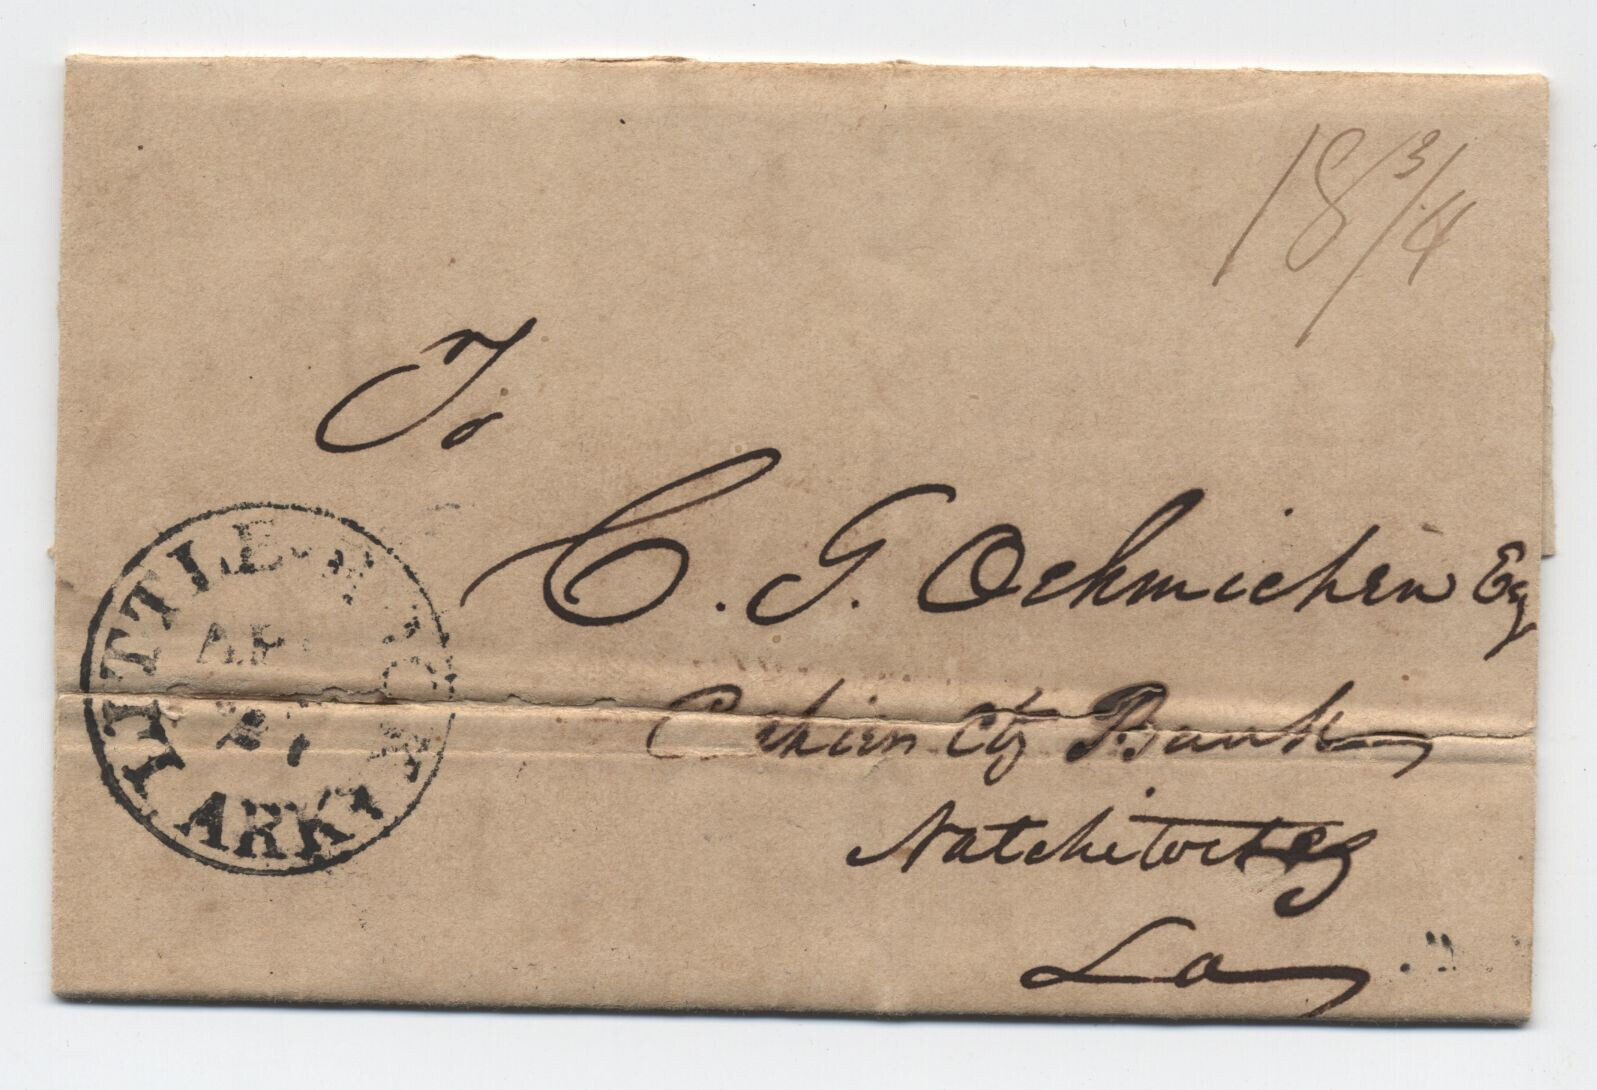 18 3/4
To
C. G. Oehmichen Esq
City Bank
Natchitoches
La
LITTLE-ROCK
AP
ARK